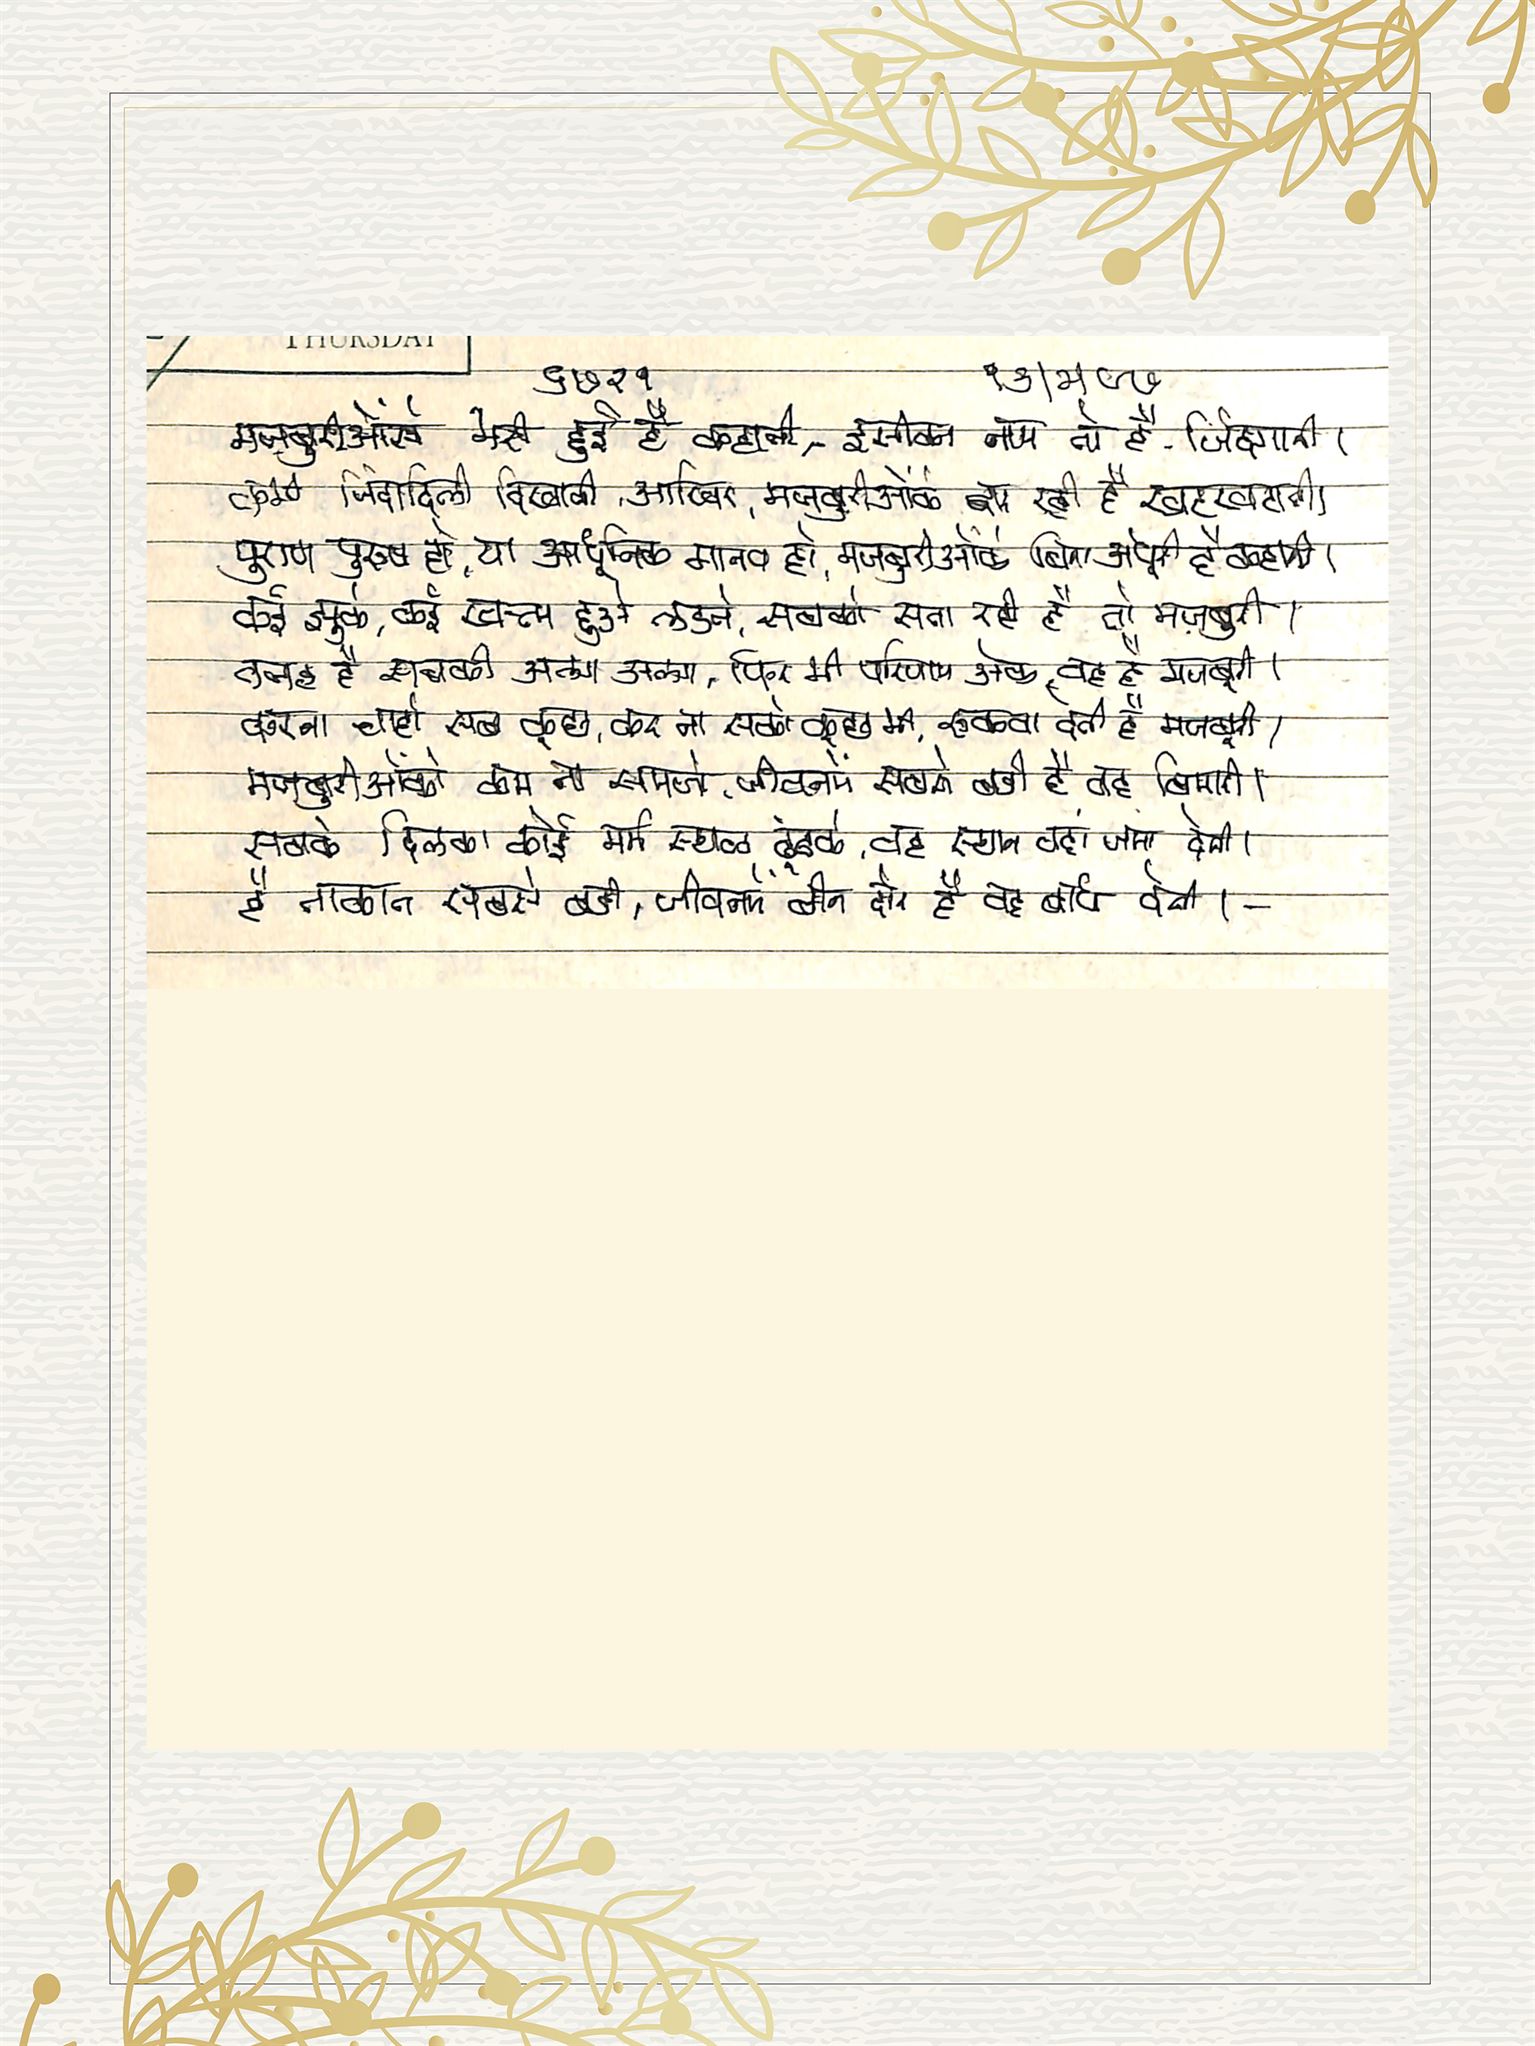 THURSDAY
६७२१
मजबुरीओंसे भरी हुई है कहानी, इसीका नाम तो है - जिंदगानी ।
जिंदादिली दिखाती, आखिर, मजबुरीओंके रही है
पुराण पुरुष हो, या आधूनिक मानव हो, मजबुरीओंके बिना अधूरी है कहानी ।
कई झुके, कई खत्म हुओ लडते, सबको सता रही है तो मजबुरी ।
वजह है सबकी अलग अलग, फिर भी परिणाम ओक, वह है मजबूरी ।
करना चाहो सब कूछ, कर ना सको कूछ भी, रुकवा देती है मजबूरी ।
मजबुरीओंको कम ना समजो, जीवनमें सबसे बडी है वह बिमारी ।
सबके दिलका कोई मर्म स्थळ ढूंडके, वह स्थान वहां जमा देती ।
है ताकात सबसे बडी, जीवनमें कौन है वह बांध देती । -